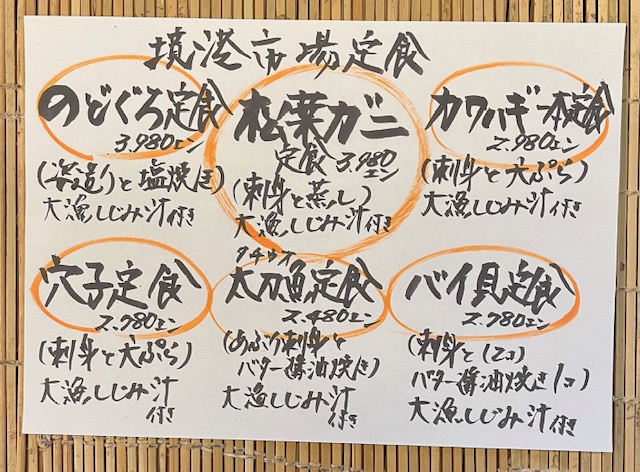 境港市場定食
のどぐろ定食
3,980エン
(姿造りと塩焼き)
大漁しじみ汁付き
松葉ガニ
定食3,980エン
(刺身と蒸し)
大漁しじみ汁付き
カワハギ一本定食
2,980エン
(刺身と天ぷら)
大漁しじみ汁付き
穴子定食
2,980エン
(刺身と天ぷら)
大漁しじみ汁
付き
タチウオ
太刀魚定食
2,480エン
(あぶり刺身と
バター醤油焼き)
大漁しじみ汁
付き
バイ貝定食
2,980エン
(刺身と(2コ)
バター醤油焼き1コ)
大漁しじみ汁付き